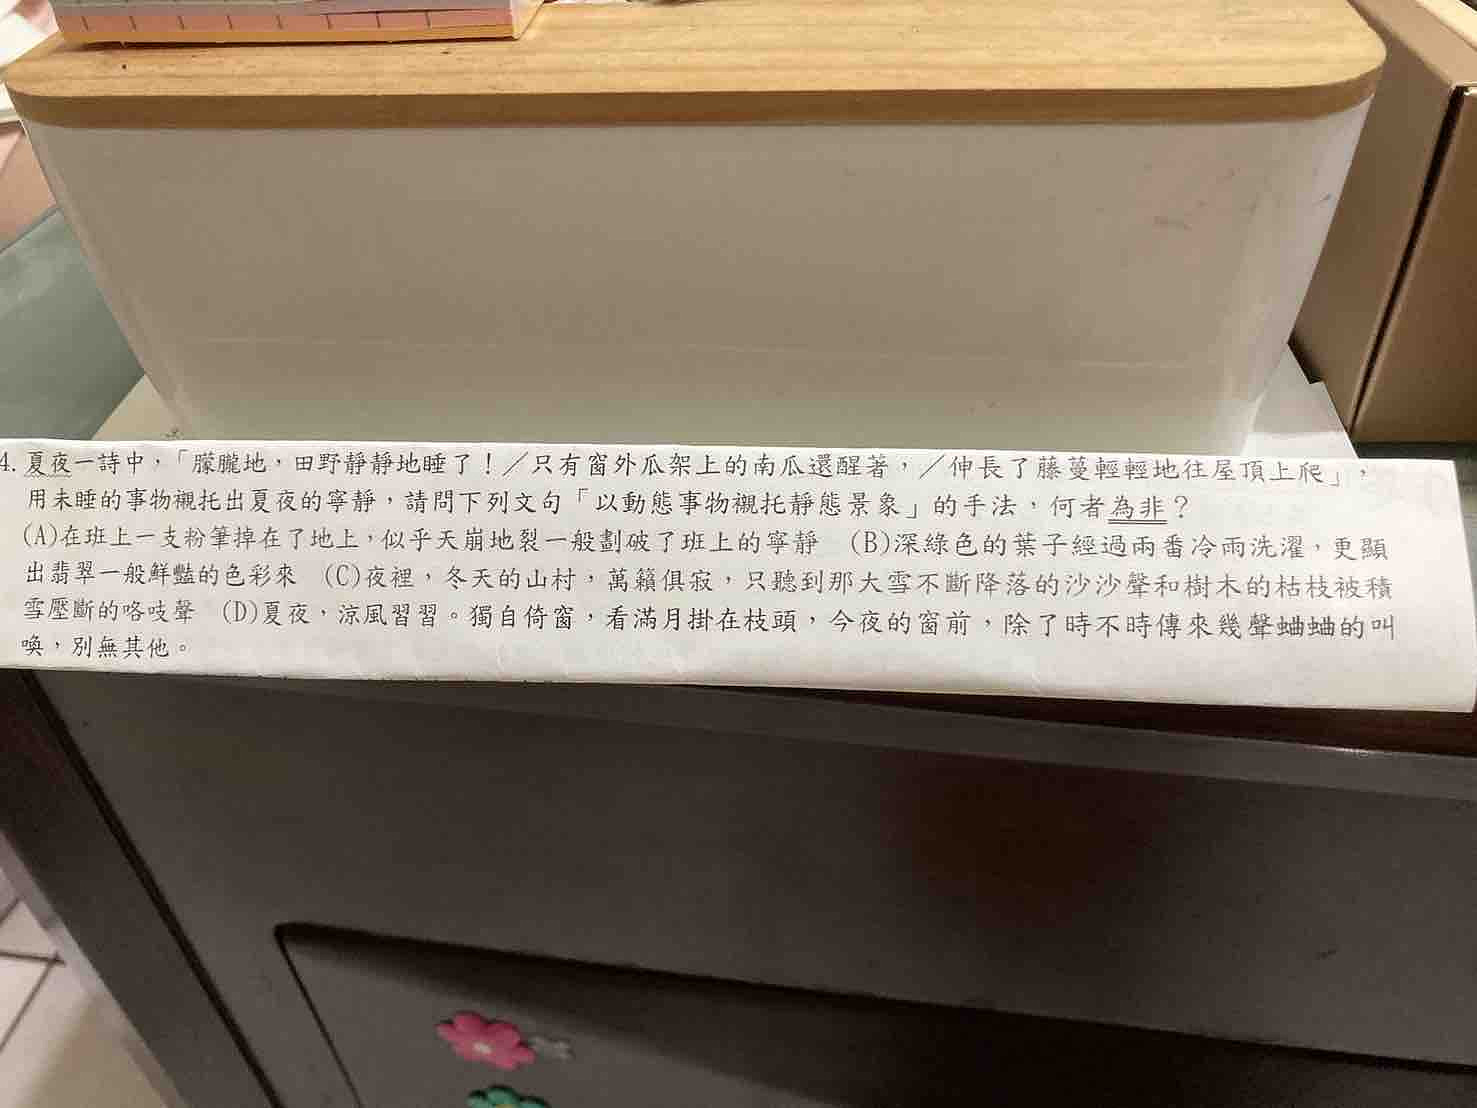 4. 夏夜一詩中，「朦朧地，田野靜靜地睡了！／只有窗外瓜架上的南瓜還醒著，／伸長了藤蔓輕輕地往屋頂上爬」，
用未睡的事物襯托出夏夜的寧靜，請問下列文句「以動態事物襯托靜態景象」的手法，何者為非？
(A)在班上一支粉筆掉在了地上，似乎天崩地裂一般劃破了班上的寧靜　(B)深綠色的葉子經過兩番冷雨洗濯，更顯
出翡翠一般鮮豔的色彩來　(C)夜裡，冬天的山村，萬籟俱寂，只聽到那大雪不斷降落的沙沙聲和樹木的枯枝被積
雪壓斷的咯吱聲　(D)夏夜，涼風習習。獨自倚窗，看滿月掛在枝頭，今夜的窗前，除了時不時傳來幾聲蛐蛐的叫
喚，別無其他。